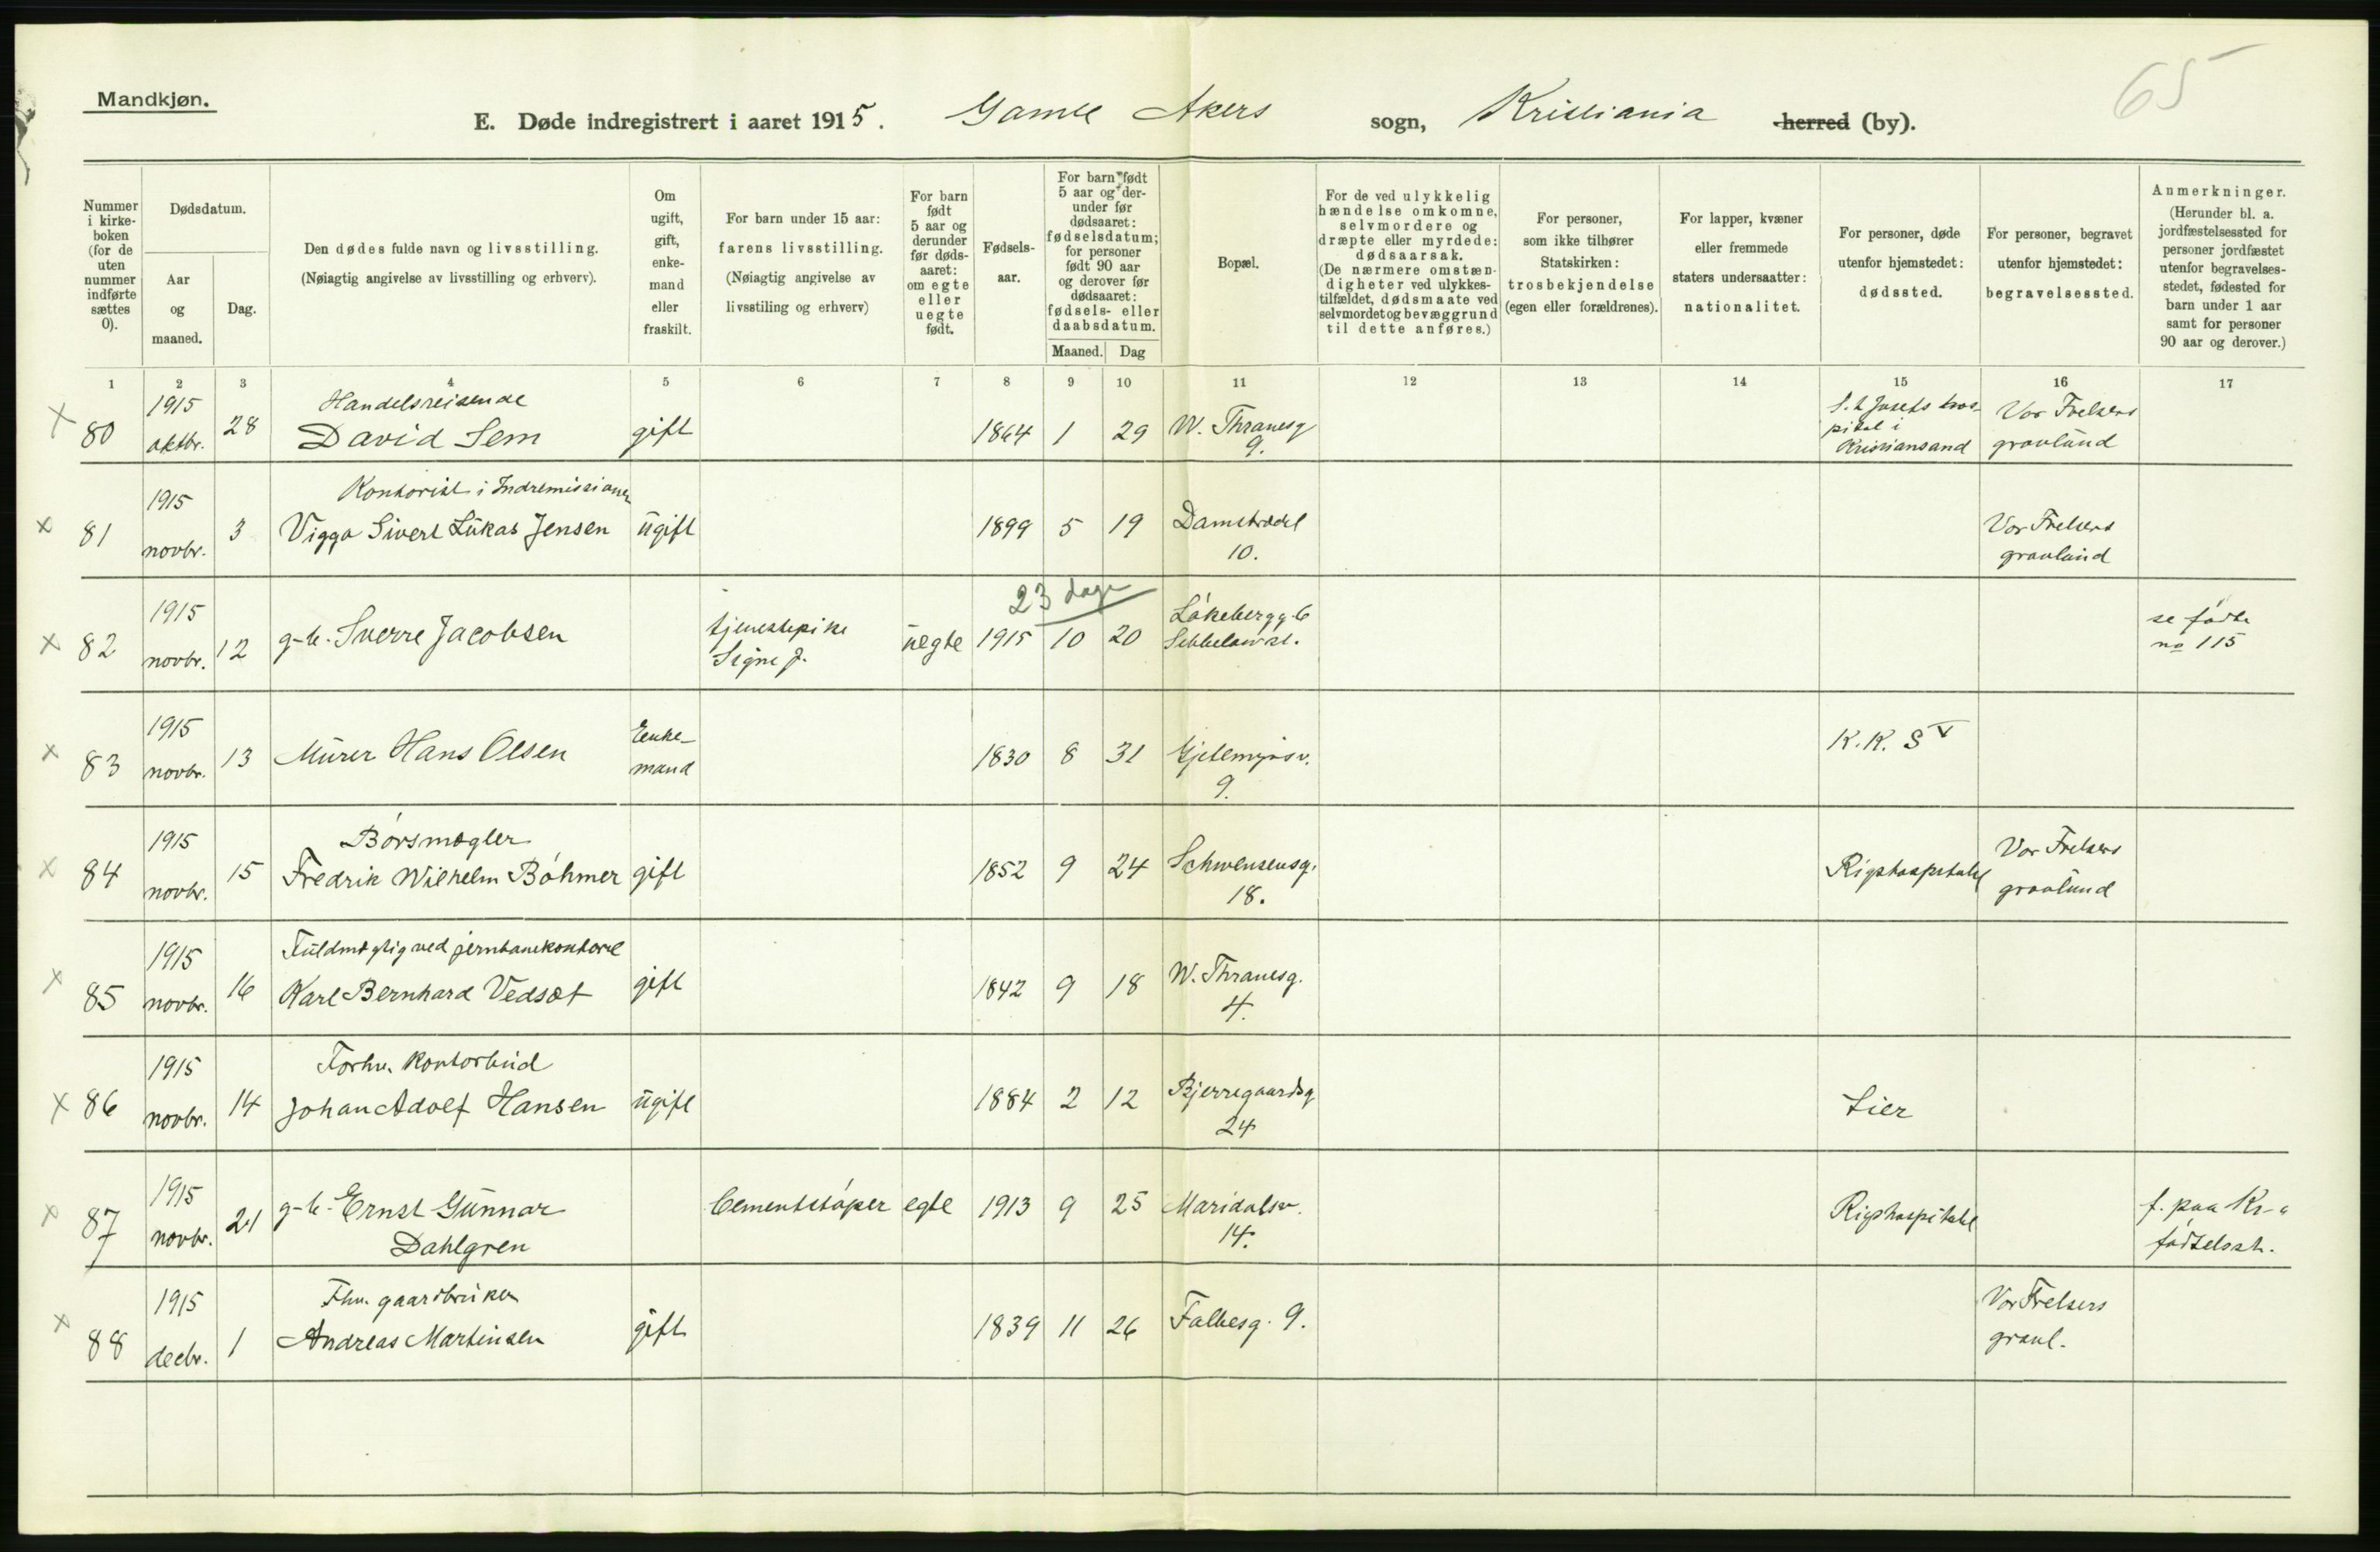 65
Mandkjøn.
E. Døde indregistrert i aaret 1915. Gamle Akers sogn, Kristiania herred (by).
Nummer i kirke-boken (for de uten nummer indførte sættes 0).
Dødsdatum.
Aar og maaned.
Dag.
Den dødes fulde navn og livsstilling.
(Nøiagtig angivelse av livsstilling og erhverv).
Om ugift, gift, enke-mand eller fraskilt.
For barn under 15 aar:
farens livsstilling.
(Nøiagtig angivelse av livsstiling og erhverv)
For barn født 5 aar og derunder før døds-aaret: om egte eller uegte født.
Fødsels-aar.
For barn født 5 aar og der-under før dødsaaret: fødselsdatum; for personer født 90 aar og derover før dødsaaret: fødsels- eller daabsdatum.
Maaned. Dag
Bopæl.
For de ved ulykkelig hændelse omkomne, selvmordere og dræpte eller myrdede: dødsaarsak. (De nærmere omstæn-digheter ved ulykkes-tilfældet, dødsmaate ved selvmordet og bevæggrund til dette anføres.)
For personer, som ikke tilhører Statskirken: trosbekjendelse (egen eller forældrenes).
For lapper, kvæner eller fremmede staters undersaatter: nationalitet.
For personer, døde utenfor hjemstedet: dødssted.
For personer, begravet utenfor hjemstedet: begravelsessted.
Anmerkninger. (Herunder bl. a. jordfæstelsessted for personer jordfæstet utenfor begravelses-stedet, fødested for barn under 1 aar samt for personer 90 aar og derover.)
1 2 3 4 5 6 7 8 9 10 11 12 13 14 15 16 17
x 80 1915 oktbr. 28 Handelsreisende
David Sem gift 1864 1 29 W. Thranesg 9. S.t Josefs hos-pital i Kristiansand Vor Frelsers gravlund
x 81 1915 novbr. 3 Kontorist i Indremissionen
Viggo Sivert Lukas Jensen ugift 1899 5 19 Damstrædet 10. Vor Frelsers gravlund
23 dage
x 82 1915 novbr. 12 g-b. Sverre Jacobsen tjenestepike Signe J. uegte 1915 10 20 Låkebergg. 6 se fødte no 115
x 83 1915 novbr. 13 Murer Hans Olsen Enke-mand 1830 8 31 9. K. K. S V
x 84 1915 novbr. 15 Børsmægler
Fredrik Wilhelm Bøhmer gift 1852 9 24 Schwensensg. 18. Rigshospitalet Vor Frelsers gravlund
x 85 1915 novbr. 16 Fuldmægtig ved jernbanekontoret
Karl Bernhard Vedsæt gift 1842 9 18 W. Thranesg. 4.
x 86 1915 novbr. 14 Forhv. Kontorbud
Johan Adolf Hansen ugift 1884 2 12 Bjerregaardsg 24 Lier
x 87 1915 novbr. 21 g-b. Ernst Gunnar
Dahlgren Cementstøper egte 1913 9 25 Maridalsv. 14. Rigshospitalet f. paa Kr-a fødselsst.
x 88 1915 decbr. 1 Fhv. gaardbruker
Andreas Martinsen gift 1839 11 26 Falbesg. 9. Vor Frelsers gravl.